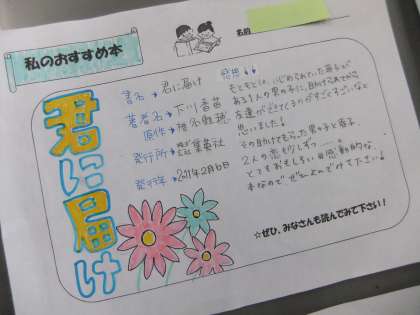 私のおすすめ本
名前
君に届け
書名→君に届け
著者名→下川香苗
原作→椎名軽穂
発行所→集英社
発行年→2011年2月
感想
もともとは、いじめられていた爽子が
ある1人の男の子に、助けられてから
友達ができてくるのがすごくすごいなと
思いました!
その助けてもらった男の子と爽子、
2人の恋も少しずつ……。
とてもおもしろい感動的な
本なので、ぜひよんでみて下さい!
☆ぜひ、みなさんも読んでみて下さい!